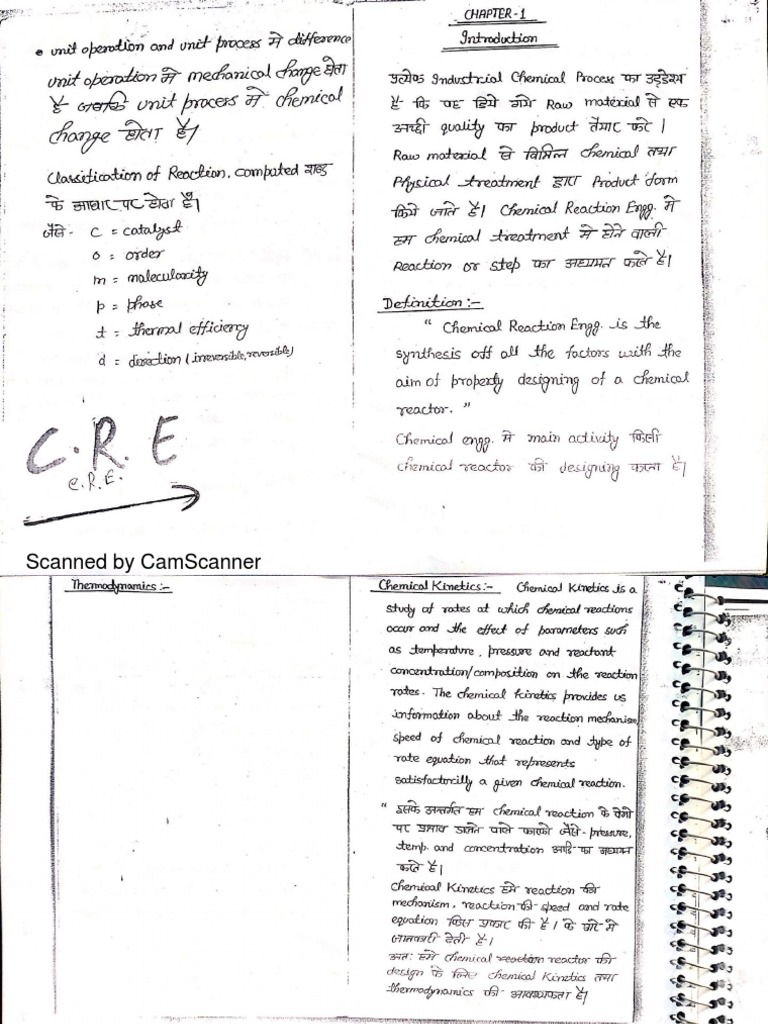 • unit operation and unit process में difference
unit operation में mechanical change होता
है जबकि unit process में chemical
change होता है।
Classification of Reaction, computed शब्द
के आधार पर होता है।
जैसे- C = catalyst
o = order
m = molecularity
p = phase
t = thermal efficiency
d = direction (irreversible, reversible)
C.R.E
C.R.E.
Scanned by CamScanner
CHAPTER-1
Introduction
प्रत्येक Industrial Chemical Process का उद्देश्य
है कि वह दिये गये Raw material से एक
अच्छी quality का product तैयार करे।
Raw material से विभिन्न chemical तथा
Physical treatment द्वारा Product form
किये जाते है। Chemical Reaction Engg. में
हम chemical treatment में होने वाली
Reaction or step का अध्ययन करते है।
Definition :-
“ Chemical Reaction Engg. is the
synthesis off all the factors with the
aim of property designing of a chemical
reactor. ”
Chemical engg. में main activity किसी
chemical reactor की designing करना है।
Thermodynamics :-
Chemical Kinetics :- Chemical Kinetics is a
study of rates at which chemical reactions
occur and the effect of parameters such
as temperature, pressure and reactant
concentration/composition on the reaction
rates. The chemical kinetics provides us
information about the reaction mechanism,
speed of chemical reaction and type of
rate equation that represents
satisfactorcilly a given chemical reaction.
“ इसके अन्तर्गत हम chemical reaction के वेगो
पर प्रभाव डालने वाले कारको जैसे - pressure,
temp. and concentration आदि का अध्ययन
करते है।
Chemical Kinetics हमे reaction की
mechanism, reaction की speed and rate
equation किस प्रकार की है। के बारे में
जानकारी देती है।
अतः हमे chemical reaction reactor की
design के लिए chemical Kinetics तथा
thermodynamics की आवश्यकता है।